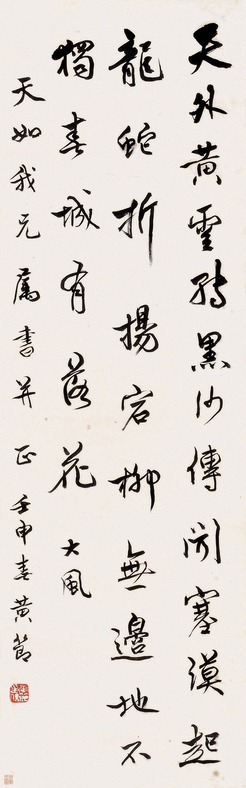 天外黃雲黑沙傳聞塞漠起
龍蛇折揚宕柳無邊地不
獨春城有落花 大風
天如我兄屬書并正 壬申春黃節